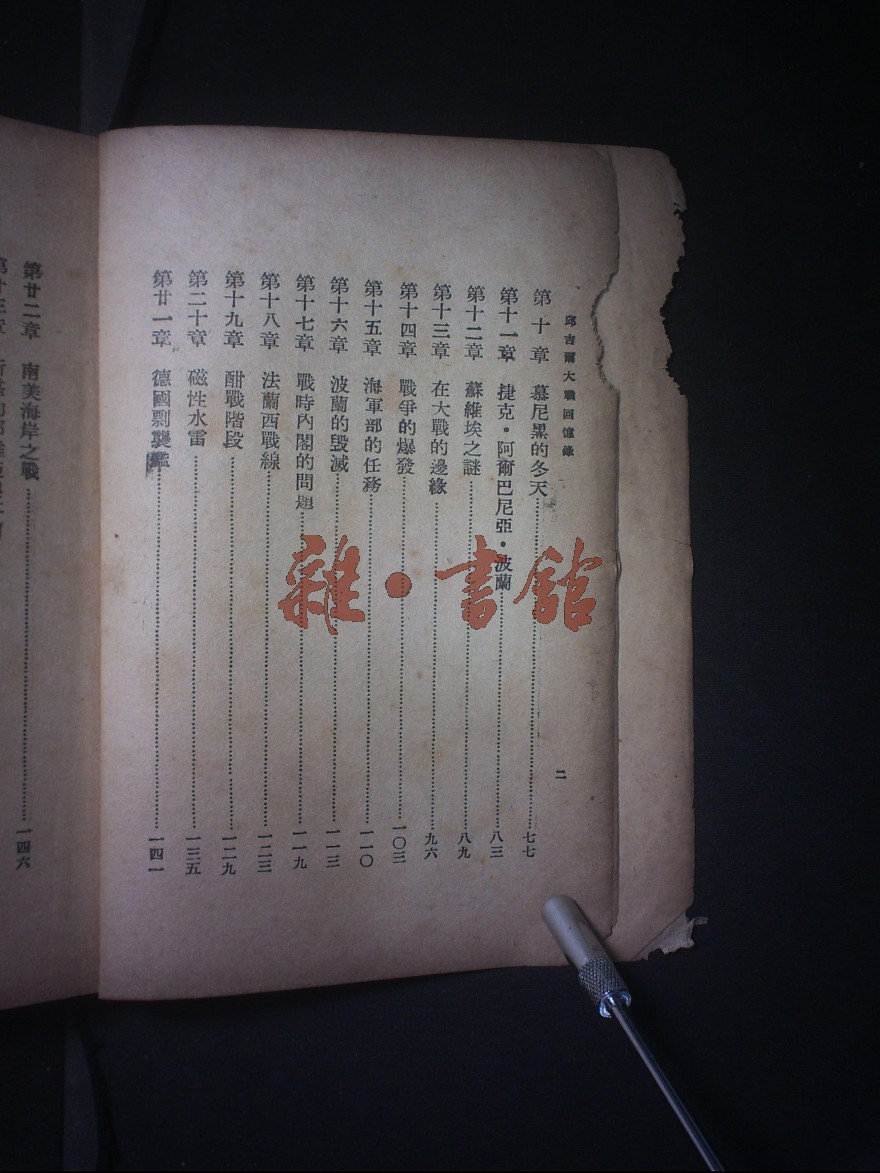 邱吉爾大戰回憶錄
二
第十章 慕尼黑的冬天 七七
第十一章 捷克·阿爾巴尼亞·波蘭 八三
第十二章 蘇維埃之謎 八九
第十三章 在大戰的邊緣 九六
第十四章 戰爭的爆發 一〇三
第十五章 海軍部的任務 一一〇
第十六章 波蘭的毀滅 一一三
第十七章 戰時內閣的問題 一一九
第十八章 法蘭西戰線 一二三
第十九章 酣戰階段 一二九
第二十章 磁性水雷 一三五
第廿一章 德國剽襲艦 一四一
第廿二章 南美海岸之戰 一四六
雜·書館